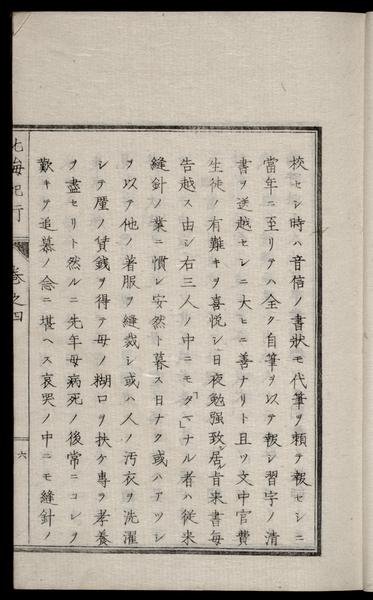 校セシ時ハ音信ノ書状モ代筆ヲ頼テ報セシニ
當年ニ至リテハ全ク自筆ヲ以テ報シ習字ノ清
書ヲ送越セシニ大ヒニ善ナリト且ツ文中官費
生徒ノ有難キヲ喜悦シ日夜勉强致シ居シ旨来書毎
告越ス由シ右三人ノ中ニモ「タマ」ナル者ハ従来
縫針ノ業ニ慣レ安然ト暮ス日ナク或ハアツシ
ヲ以テ他ノ著服ヲ縫裁シ或ハ人ノ汚衣ヲ洗濯
シテ厘ノ賃銭ヲ得テ母ノ糊口ヲ扶ケ專ラ孝養
ヲ盡セリト然ルニ先年母病死ノ後常ニコレヲ
歎キテ追慕ノ念ニ堪ヘス哀哭ノ中ニモ縫針ノ
北海紀行 卷之四 六